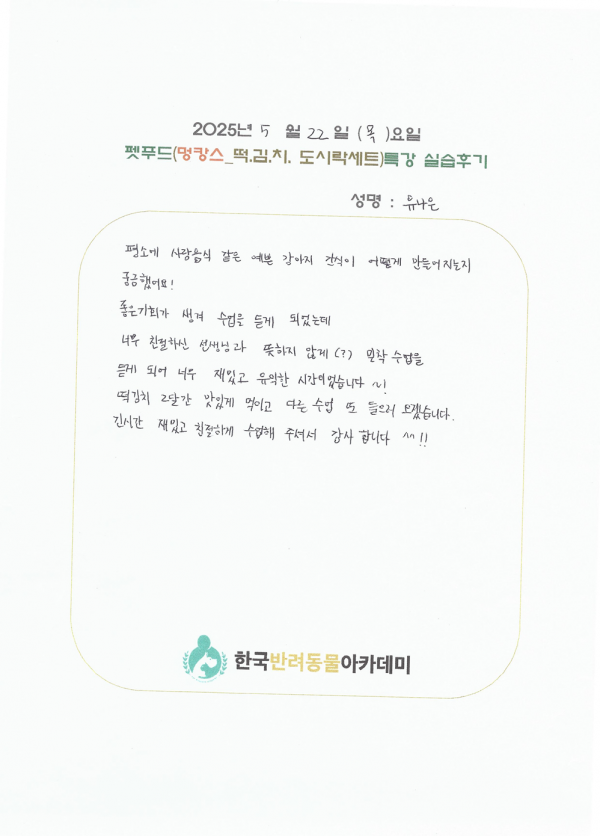 2025년 5 월 22 일 (목)요일
펫푸드(멍캉스_떡.김.치. 도시락세트)특강 실습후기
성명 : 유나은
평소에 사람음식 같은 예쁜 강아지 간식이 어떻게 만들어지는지
궁금했어요!
좋은기회가 생겨 수업을 듣게 되었는데
너무 친절하신 선생님과 뜻하지 않게(?) 밀착 수업을
듣게 되어 너무 재밌고 유익한 시간이었습니다 ~!
떡김치 2달간 맛있게 먹이고 다른 수업 또 들으러 오겠습니다.
긴시간 재밌고 친절하게 수업해 주셔서 감사 합니다 ^^!!
한국반려동물아카데미